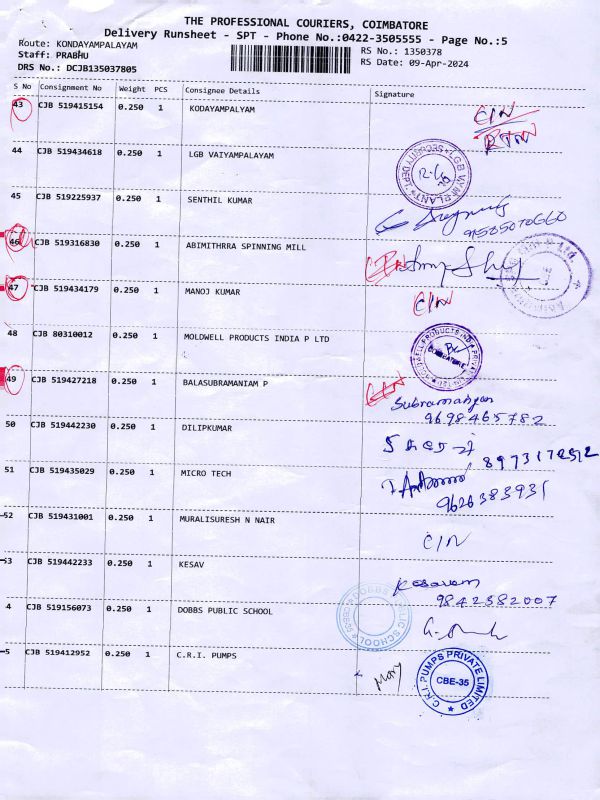 THE PROFESSIONAL COURIERS, COIMBATORE
Delivery Runsheet - SPT - Phone No.:0422-3505555 - Page No.:5
Route: KONDAYAMPALAYAM
Staff: PRABHU
DRS No.: DCJB135037805
RS No.: 1350378
RS Date: 09-Apr-2024
S No Consignment No Weight PCS Consignee Details Signature
43 CJB 519415154 0.250 1 KODAYAMPALYAM C/N
RTN
44 CJB 519434618 0.250 1 LGB VAIYAMPALAYAM
45 CJB 519225937 0.250 1 SENTHIL KUMAR
46 CJB 519316830 0.250 1 ABIMITHRRA SPINNING MILL
47 CJB 519434179 0.250 1 MANOJ KUMAR C/N
48 CJB 80310012 0.250 1 MOLDWELL PRODUCTS INDIA P LTD
49 CJB 519427218 0.250 1 BALASUBRAMANIAM P C/N
Subramaniyan
9698465782
50 CJB 519442230 0.250 1 DILIPKUMAR
51 CJB 519435029 0.250 1 MICRO TECH
9626383931
52 CJB 519431001 0.250 1 MURALISURESH N NAIR C/N
53 CJB 519442233 0.250 1 KESAV Kesavan
9842382007
4 CJB 519156073 0.250 1 DOBBS PUBLIC SCHOOL
DOBBS PUBLIC SCHOOL
5 CJB 519412952 0.250 1 C.R.I. PUMPS Mary
C.R.I. PUMPS PRIVATE LIMITED
CBE-35